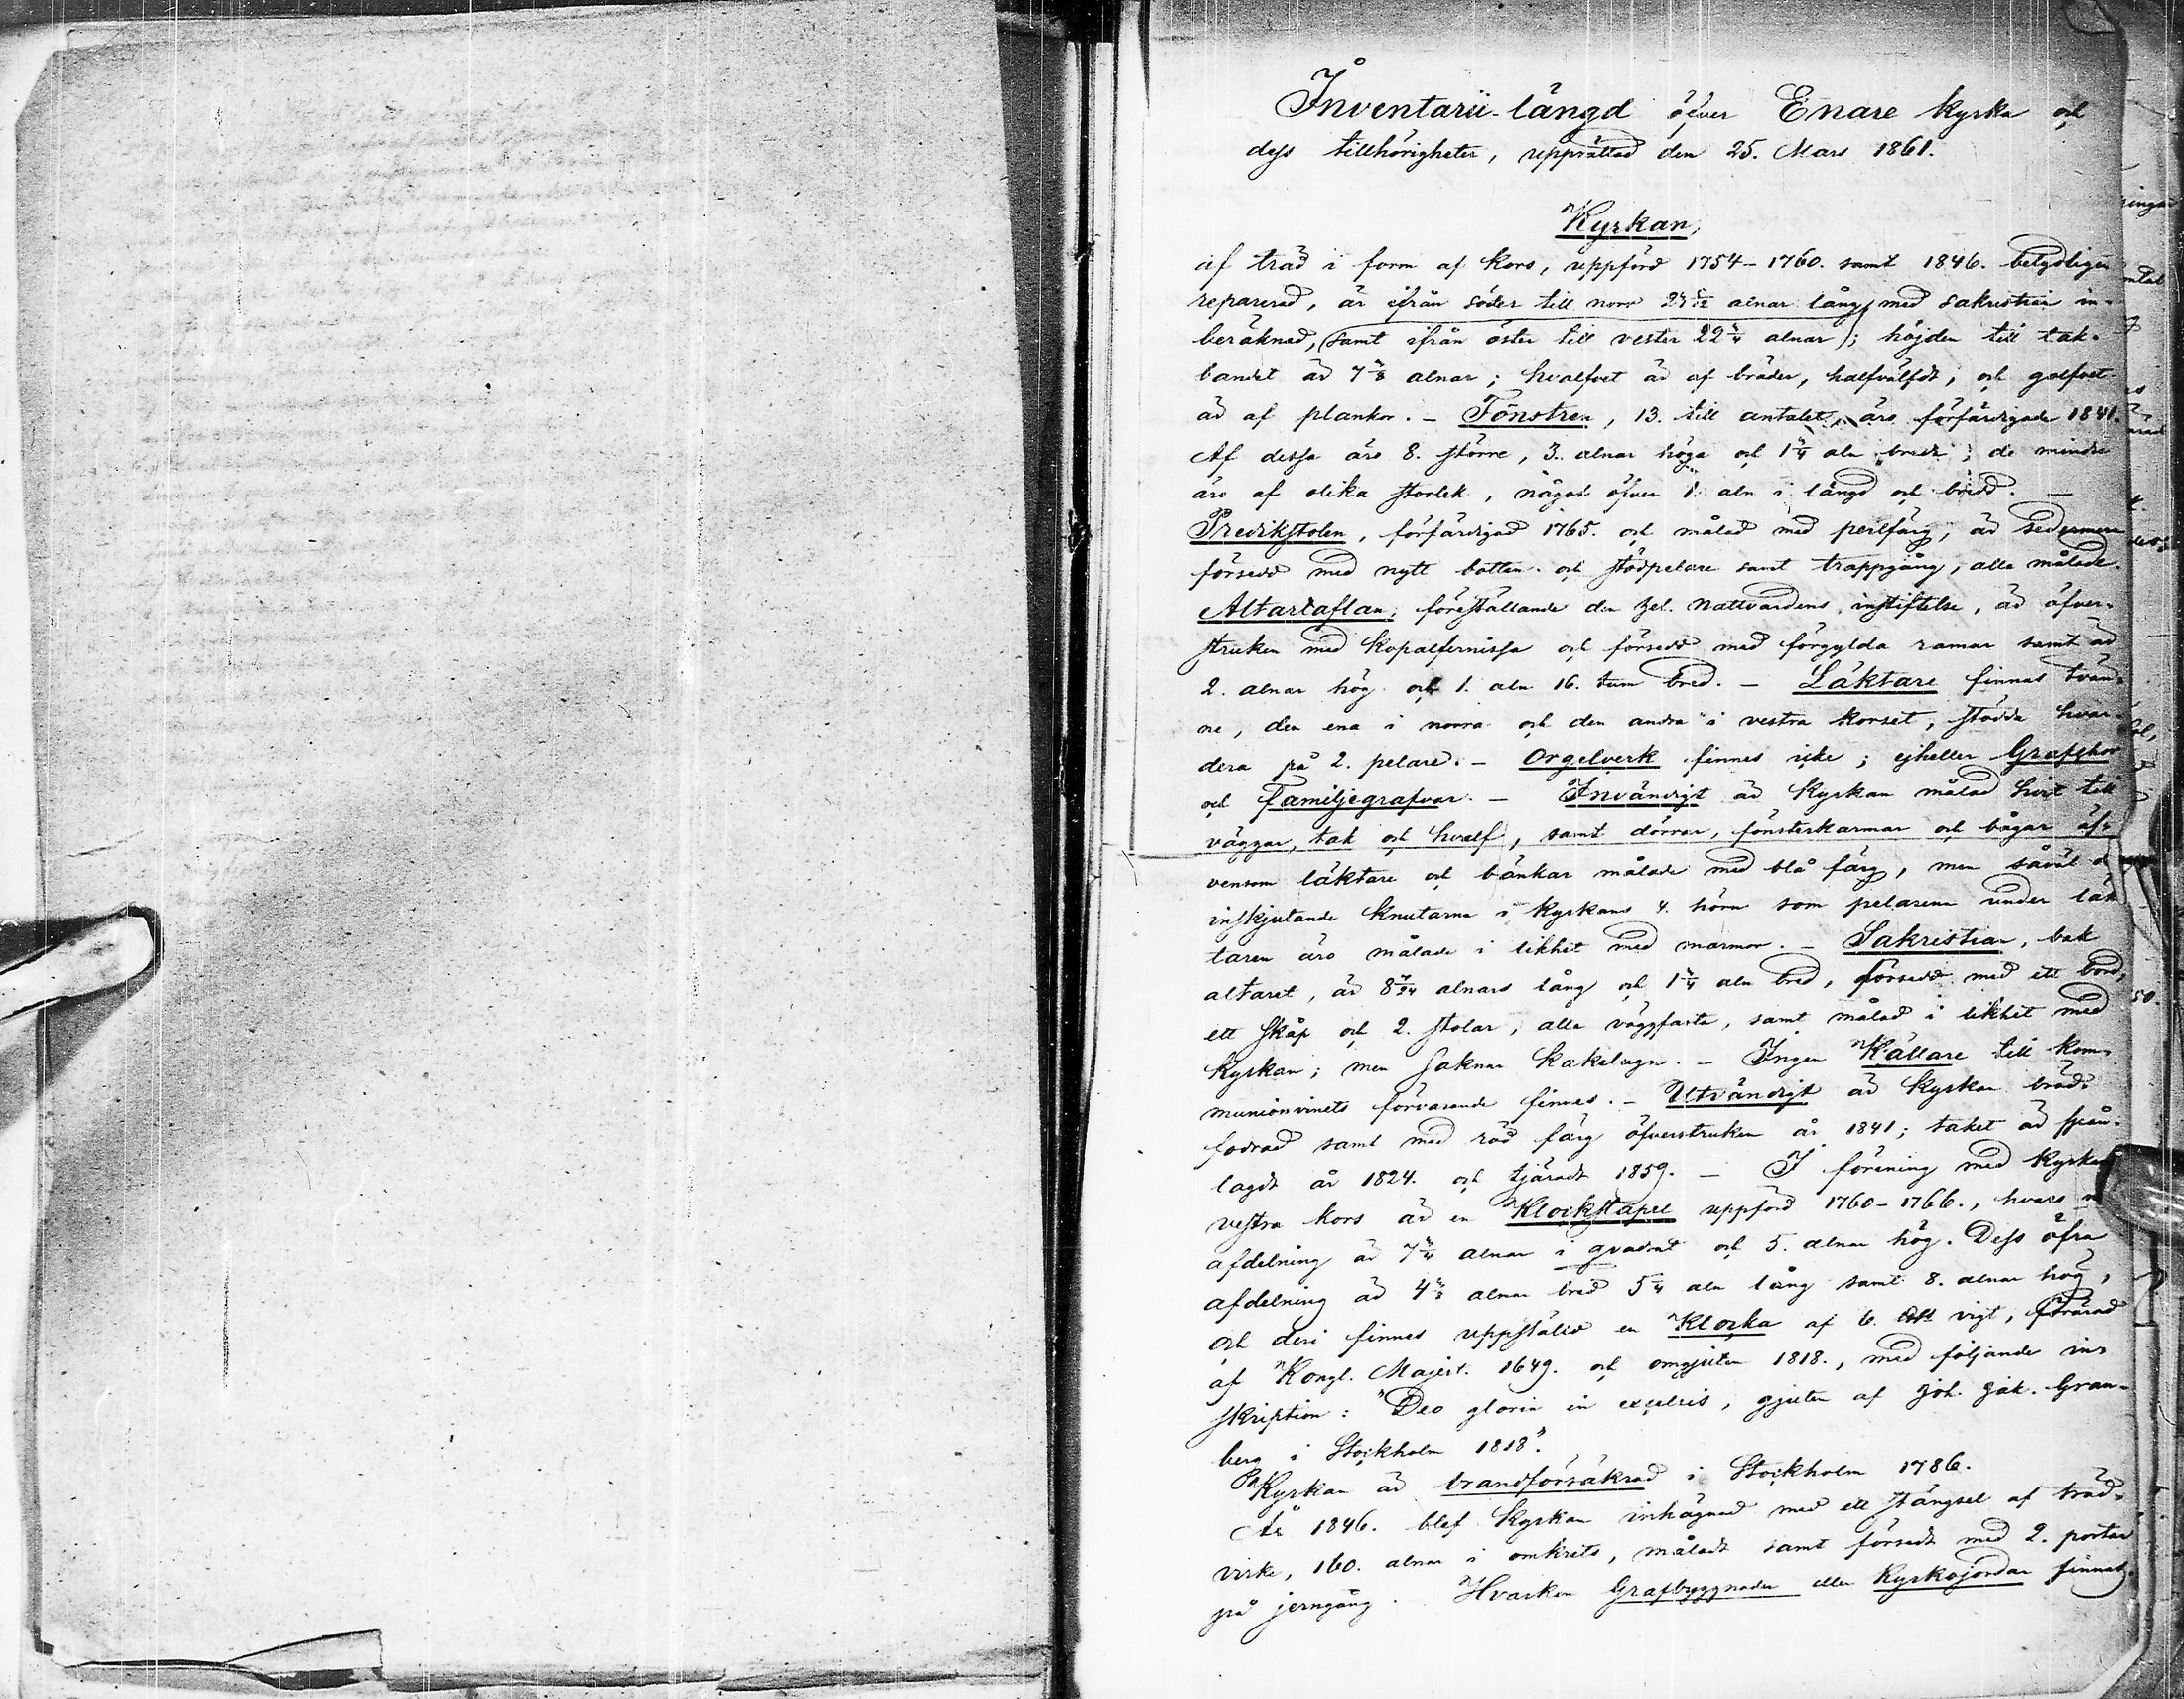 Inventarii-längd öfver Enare kyrka och
dess tillhörigheter, upprättad den 25. Mars 1861.
Kyrkan,
af träd i form af kors, uppförd 1754-1760. samt 1846. betydligen
reparerad, är ifrån söder till norr alnar lång, med sakristian in-
beräknad, (samt ifrån öster till vester 22 3/4 alnar); höjden till tak-
bandet är alnar; hvalfvet är af bräder, halfvälfdt, och golfvet
är af plankor. - Fönstren, 13. till antalet, äro förfärdigade 1841.
Af dessa äro 8. större, 3. alnar höga och aln bred; de mindre
äro af olika storlek, något öfver 1. aln i längd och bredd. -
Predikstolen, förfärdigad 1765. och målad med perlfärg, är sedermera
försedd med nytt botten och stödpelare samt trappgång, alla målade.
Altartaflan, föreställande den hel. Nattvardens instiftelse, är öfver-
struken med kopalfernissa och försedd med förgyllda ramar samt är
2. alnar hög och 1. aln 16. tum bred. - Läktare finnas tvän-
ne, den ena i norra och den andra i vestra korset, stödde hvar-
dera på 2. pelare. - Orgelverk finnes icke; ejheller Grafchor
och Familjegrafvar. - Invändigt är Kyrkan målad hvit till
väggar, tak och hvalf, samt dörrar, fönsterkarmar och bågar äf-
vensom läktare och bänkar målade med blå färg, men såväl de
inskjutande knutarne i kyrkans 4. hörn som pelarena under läk
taren äro målade i likhet med marmor. - Sakristian, bak
altaret, är alnars lång och aln bred, försedd med ett bord,
ett skåp och 2. stolar, alla väggfasta, samt målad i likhet med
kyrkan; men saknar kakelugn. - Ingen Källare till kom-
munionvinets förvarande finnes. - Utvändigt är kyrkan bräd-
fodrad samt med röd färg öfverstruken år 1841; taket är spån-
lagdt år 1824. och tjäradt 1859. - I förening med kyrkans
vestra kors är en Klockstapel uppförd 1760-1766., hvars
afdelning är 7 3/4 alnar i qvadrat och 5. alnar hög. Dess öfra
afdelning är alnar bred aln lång samt 8. alnar hög,
och deri finnes uppställd en Klocka af 6. vigt, förärad
af Kongl. Majest. 1649. och omgjuten 1818., med följande in-
skription: "Deo gloria in excelsis, gjuten af Joh. Jak. Gran-
berg i Stockholm 1818".
Kyrkan är brandförsäkrad i Stockholm 1786.
År 1846. blef kyrkan inhägnad med ett stängsel af träd-
virke, 160. alnar i omkrets, måladt samt försedt med 2. portar
på jerngång. - Hvarken Grafbyggnader eller Kyrkojordar finnas.